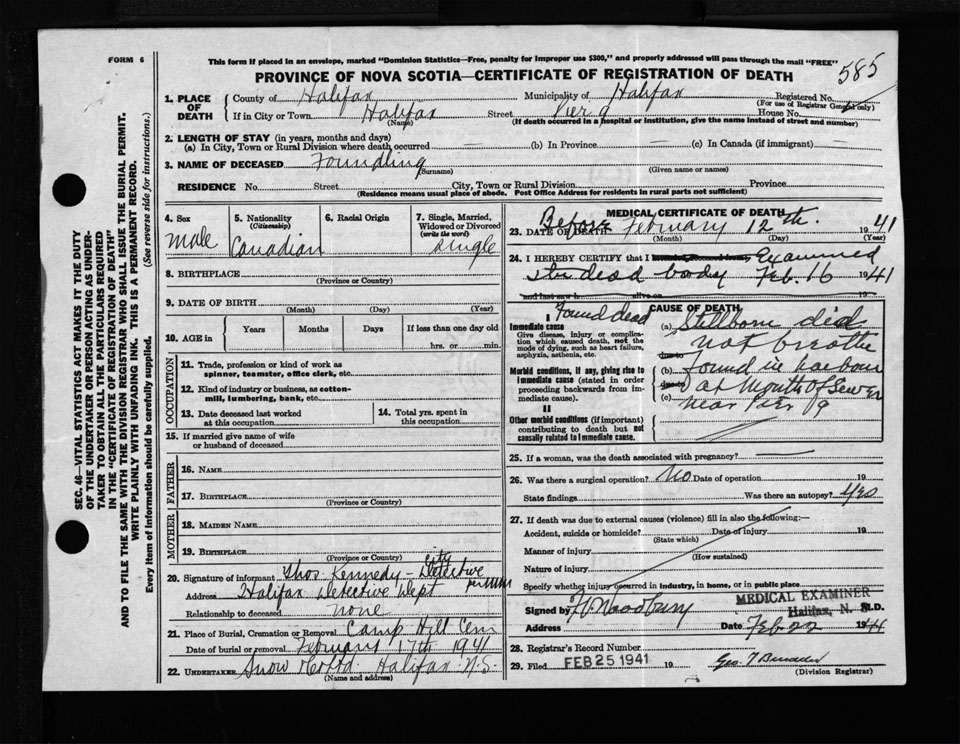 FORM 6
This form if placed in an envelope, marked "Dominion Statistics—Free, penalty for improper use $300," and properly addressed will pass through the mail "FREE"
585
PROVINCE OF NOVA SCOTIA—CERTIFICATE OF REGISTRATION OF DEATH
1. PLACE OF DEATH County of Halifax Municipality of Halifax Registered No.
(For use of Registrar General only)
If in City or Town Halifax Street Pier 9 House No.
(Name) (If death occurred in a hospital or institution, give the name instead of street and number)
2. LENGTH OF STAY (in years, months and days)
(a) In City, Town or Rural Division where death occurred — (b) In Province — (c) In Canada (if immigrant) —
3. NAME OF DECEASED Foundling
(Surname) (Given name or names)
RESIDENCE No. Street City, Town or Rural Division Province
(Residence means usual place of abode. Post Office Address for residents in rural parts not sufficient)
SEC. 46—VITAL STATISTICS ACT MAKES IT THE DUTY
OF THE UNDERTAKER OR PERSON ACTING AS UNDER-
TAKER TO OBTAIN ALL THE PARTICULARS REQUIRED
IN THE "CERTIFICATE OF REGISTRATION OF DEATH"
AND TO FILE THE SAME WITH THE DIVISION REGISTRAR WHO SHALL ISSUE THE BURIAL PERMIT.
WRITE PLAINLY WITH UNFADING INK. THIS IS A PERMANENT RECORD.
Every item of information should be carefully supplied. (See reverse side for instructions.)
4. Sex
male
5. Nationality
(Citizenship)
Canadian
6. Racial Origin
7. Single, Married,
Widowed or Divorced
(write the word)
single
8. BIRTHPLACE
(Province or Country)
9. DATE OF BIRTH
(Month) (Day) (Year)
10. AGE in Years Months Days If less than one day old
hrs. or min.
OCCUPATION
11. Trade, profession or kind of work as
spinner, teamster, office clerk, etc.
12. Kind of industry or business, as cotton-
mill, lumbering, bank, etc.
13. Date deceased last worked
at this occupation
14. Total yrs. spent in
this occupation
15. If married give name of wife
or husband of deceased
FATHER
16. NAME
17. BIRTHPLACE
(Province or Country)
MOTHER
18. MAIDEN NAME
19. BIRTHPLACE
(Province or Country)
20. Signature of informant Thos. Kennedy – City Detective
Address Halifax Detective Dept
Relationship to deceased none
21. Place of Burial, Cremation or Removal Camp Hill Cem
Date of burial or removal February 17th 1941
22. UNDERTAKER Snow & Co Ltd. Halifax N.S.
(Name and address)
MEDICAL CERTIFICATE OF DEATH
23. DATE OF DEATH Before February 12th. 1941
(Month) (Day) (Year)
24. I HEREBY CERTIFY that I Examined
the dead body Feb. 16 1941
and last saw h alive on
CAUSE OF DEATH
I Found dead
Immediate cause
Give disease, injury or complica-
tion which caused death, not the
mode of dying, such as heart failure,
asphyxia, asthenia, etc.
(a) Stillborn did
not breathe
due to
Morbid conditions, if any, giving rise to
immediate cause (stated in order
proceeding backwards from im-
mediate cause).
(b) found in harbour
due to at mouth of Sewer
(c) near Pier 9
II
Other morbid conditions (if important)
contributing to death but not
causally related to immediate cause.
25. If a woman, was the death associated with pregnancy? —
26. Was there a surgical operation? No Date of operation 19
State findings Was there an autopsy? Yes
27. If death was due to external causes (violence) fill in also the following:—
Accident, suicide or homicide? Date of injury 19
(State which)
Manner of injury
(How sustained)
Nature of injury
Specify whether injury occurred in industry, in home, or in public place
MEDICAL EXAMINER
Signed by H. Woodbury Halifax, N. S. M.D.
Address Date Feb. 22 1941
28. Registrar's Record Number
29. Filed FEB 25 1941 19
(Division Registrar)